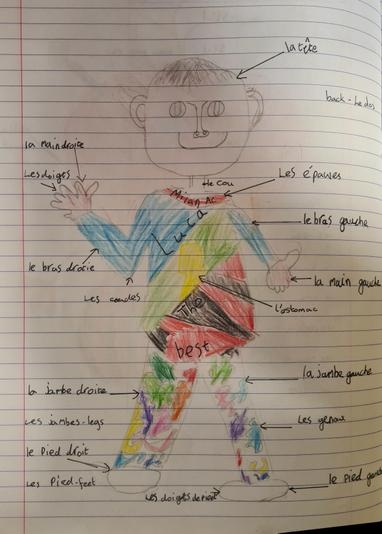 la tête
back - le dos
la main droite
Les doigts
le cou
Les épaules
Milan AC
Luca
le bras gauche
le bras droite
Les coudes
la main gauche
l'ostomac
The
best
la jambe gauche
la jambe droite
Les jambes-legs
Les genoux
le pied droit
le pied
Les Pied-feet
Les doigts de pied